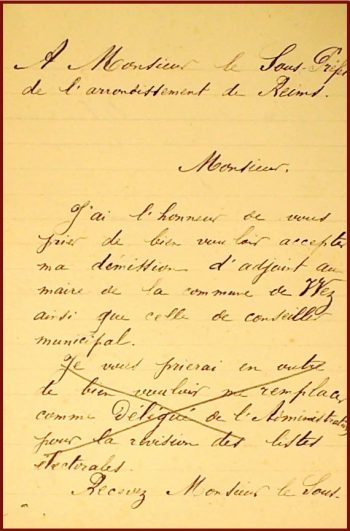 A Monsieur le Sous-Préfet
de l'arrondissement de Reims.
Monsieur.
J'ai l'honneur de vous
prier de bien vouloir accepter
ma démission d'adjoint au
maire de la commune de Wez
ainsi que celle de conseiller
municipal.
Je vous prierai en outre
de bien vouloir me remplacer
comme Délégué de l'Administration
pour la révision des listes
électorales.
Recevez Monsieur le Sous-